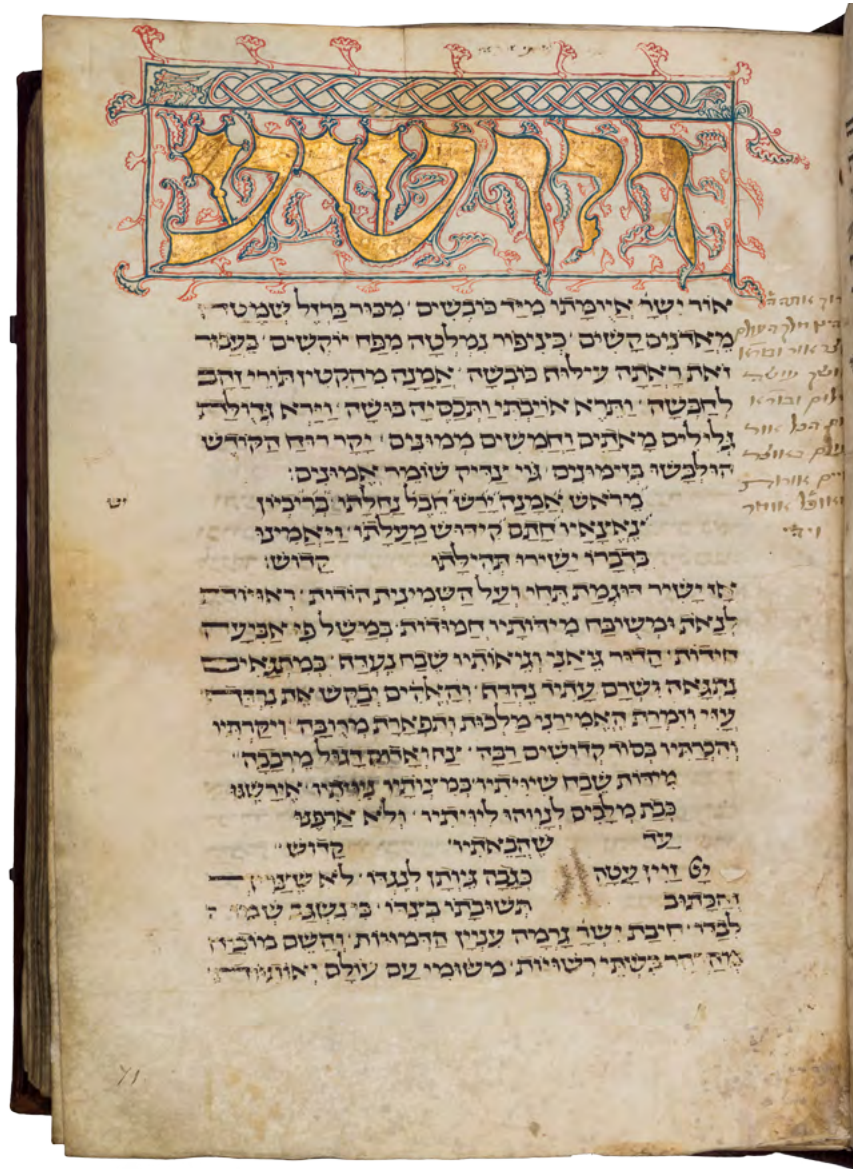 ויושע
אור ישר' איומתו מיד כובשים מכור ברזל שמטה
מאדנים קשים כציפור נמלטה מפח יוקשים בעבור
זאת ראתה עילות כובשה אמנה מהקטין תורי זהב
לחבשה ותרא אויבתי ותכסיה בושה וירא גדולת
גלילים מאתים וחמשים ממונים יקר רוח הקודש
הולבשו בזימונים גוי צדיק שומר אמונים:
מראש אמנה ירש חבל נחלתו בריביון
צאצאיו חתם קידוש מעלתו ויאמינו
בדברו ישירו תהילתו קדוש:
אז ישיר דוגמת תחי ועל השמינית הודות
לנאת ומשובח מידותיו חמודות במשל פי ארבעה
חידות הדור גיאני וגיאותיו שבח נעדה במתגאים
נתגאה ושרם עתיד נהדה והאלהים יבקש את נרדפה
עזי וזמרת האמירני מלכות ותפארת מרובה ויקרתיו
והכרתיו בסוד קדושים רבה צח ואדום דגול מרבבה
מידות שבח שיויתיו כמצותיו
כבת מלכים לנויהו ליויתיו ולא ארפנו
עד שהבאתיו קדוש
זיין עטה כגבה גיותן לנגדו לא
והכתוב תשובתו בצדו כי נשגב שמו
לבדו חיבת ישר' גרמה עניין הדמויות והשם
בשתי רשויות משומי עם עולם
רוך אתה
מלך העולם
צר אור ובורא
חושך עושה
שלום ובורא
הכל אור
עולם באוצר
חיים אורות
אומר
ויהי
71